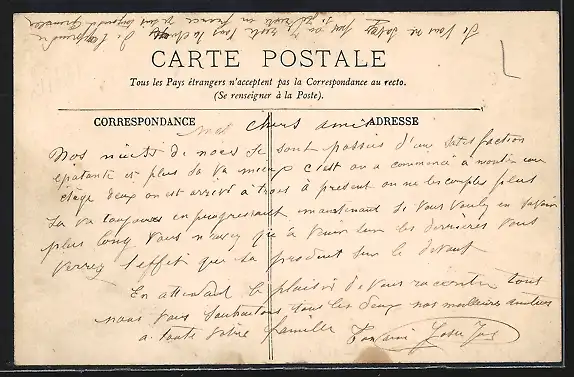 Si vous ne
CARTE POSTALE
Tous les Pays étrangers n'acceptent pas la Correspondance au recto.
(Se renseigner à la Poste).
CORRESPONDANCE ADRESSE
Mes chers amis
Nos nuits de noces se sont passées d'une satisfaction
épatante et plus sa va mieux c'est on a commencé à monter une
étage deux on est arrivé à trois à présent on ne les comptes plus
sa va toujours en progressant maintenant si vous voulez en savoir
plus long vous n'avez qu'à venir sur les derrières vous
verrez l'effet que sa produit sur le devant
En attendant le plaisir de vous raconter tout
nous vous souhaitons tous les deux nos meilleures amitiées
a toute votre famille